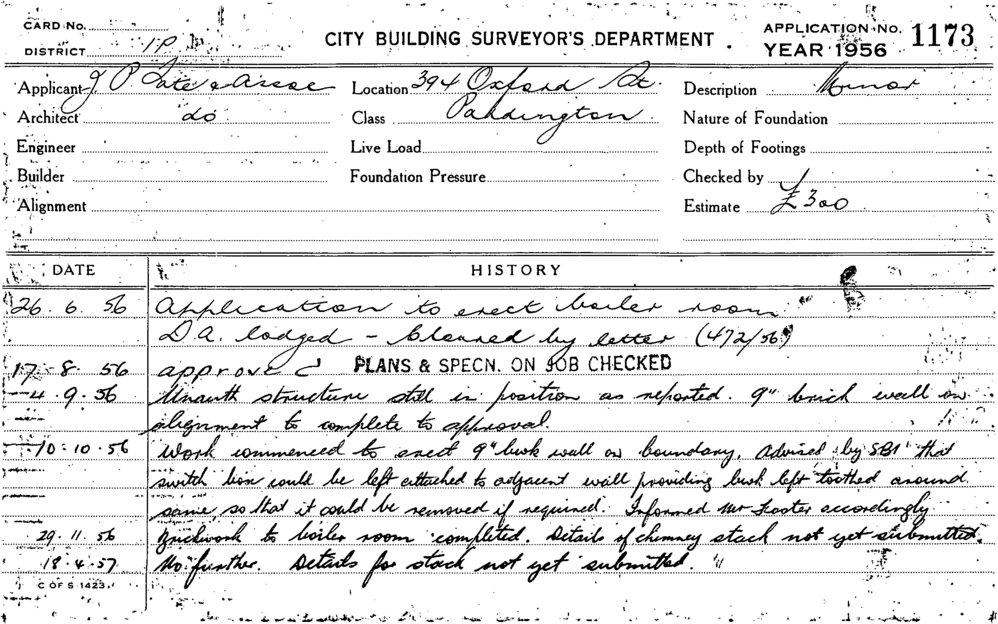 CARD No.
DISTRICT 1P
CITY BUILDING SURVEYOR'S DEPARTMENT.
APPLICATION No. 1173
YEAR 1956
Applicant J P Tate & Assoc Location 394 Oxford St. Description Minor
Architect do Class Paddington Nature of Foundation
Engineer Live Load Depth of Footings
Builder Foundation Pressure Checked by
Alignment Estimate £300
DATE HISTORY
26. 6. 56 Application to erect boiler room
D A. lodged - cleared by letter (472/56)
17 - 8. 56 approved PLANS & SPECN. ON JOB CHECKED
4. 9. 56 Unauth structure still in position as reported. 9" brick wall on
alignment to complete to approval.
10. 10. 56 Work commenced to erect 9" bwk wall on boundary. Advised by SBI that
switch box could be left attached to adjacent wall providing bwk left toothed around
same so that it could be removed if required. Informed Mr Foster accordingly
29. 11. 56 Brickwork to boiler room completed. Details of chimney stack not yet submitted.
18. 4. 57 No further. Details for stack not yet submitted. "
C OF S 1423.